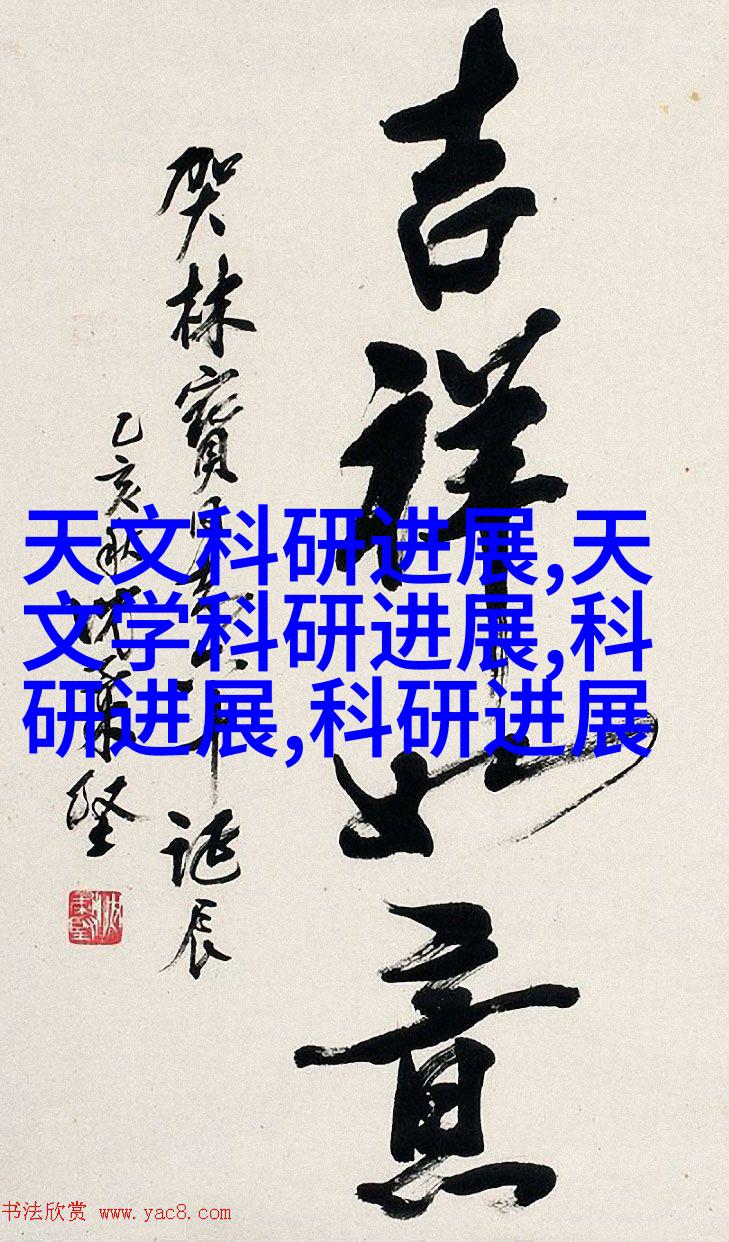 吉祥如意
贺林宝
诞辰
乙亥秋沈秉堃
天文科研进展,天
文学科研进展,科
研进展,科研进展
书法欣赏 www.yac8.com